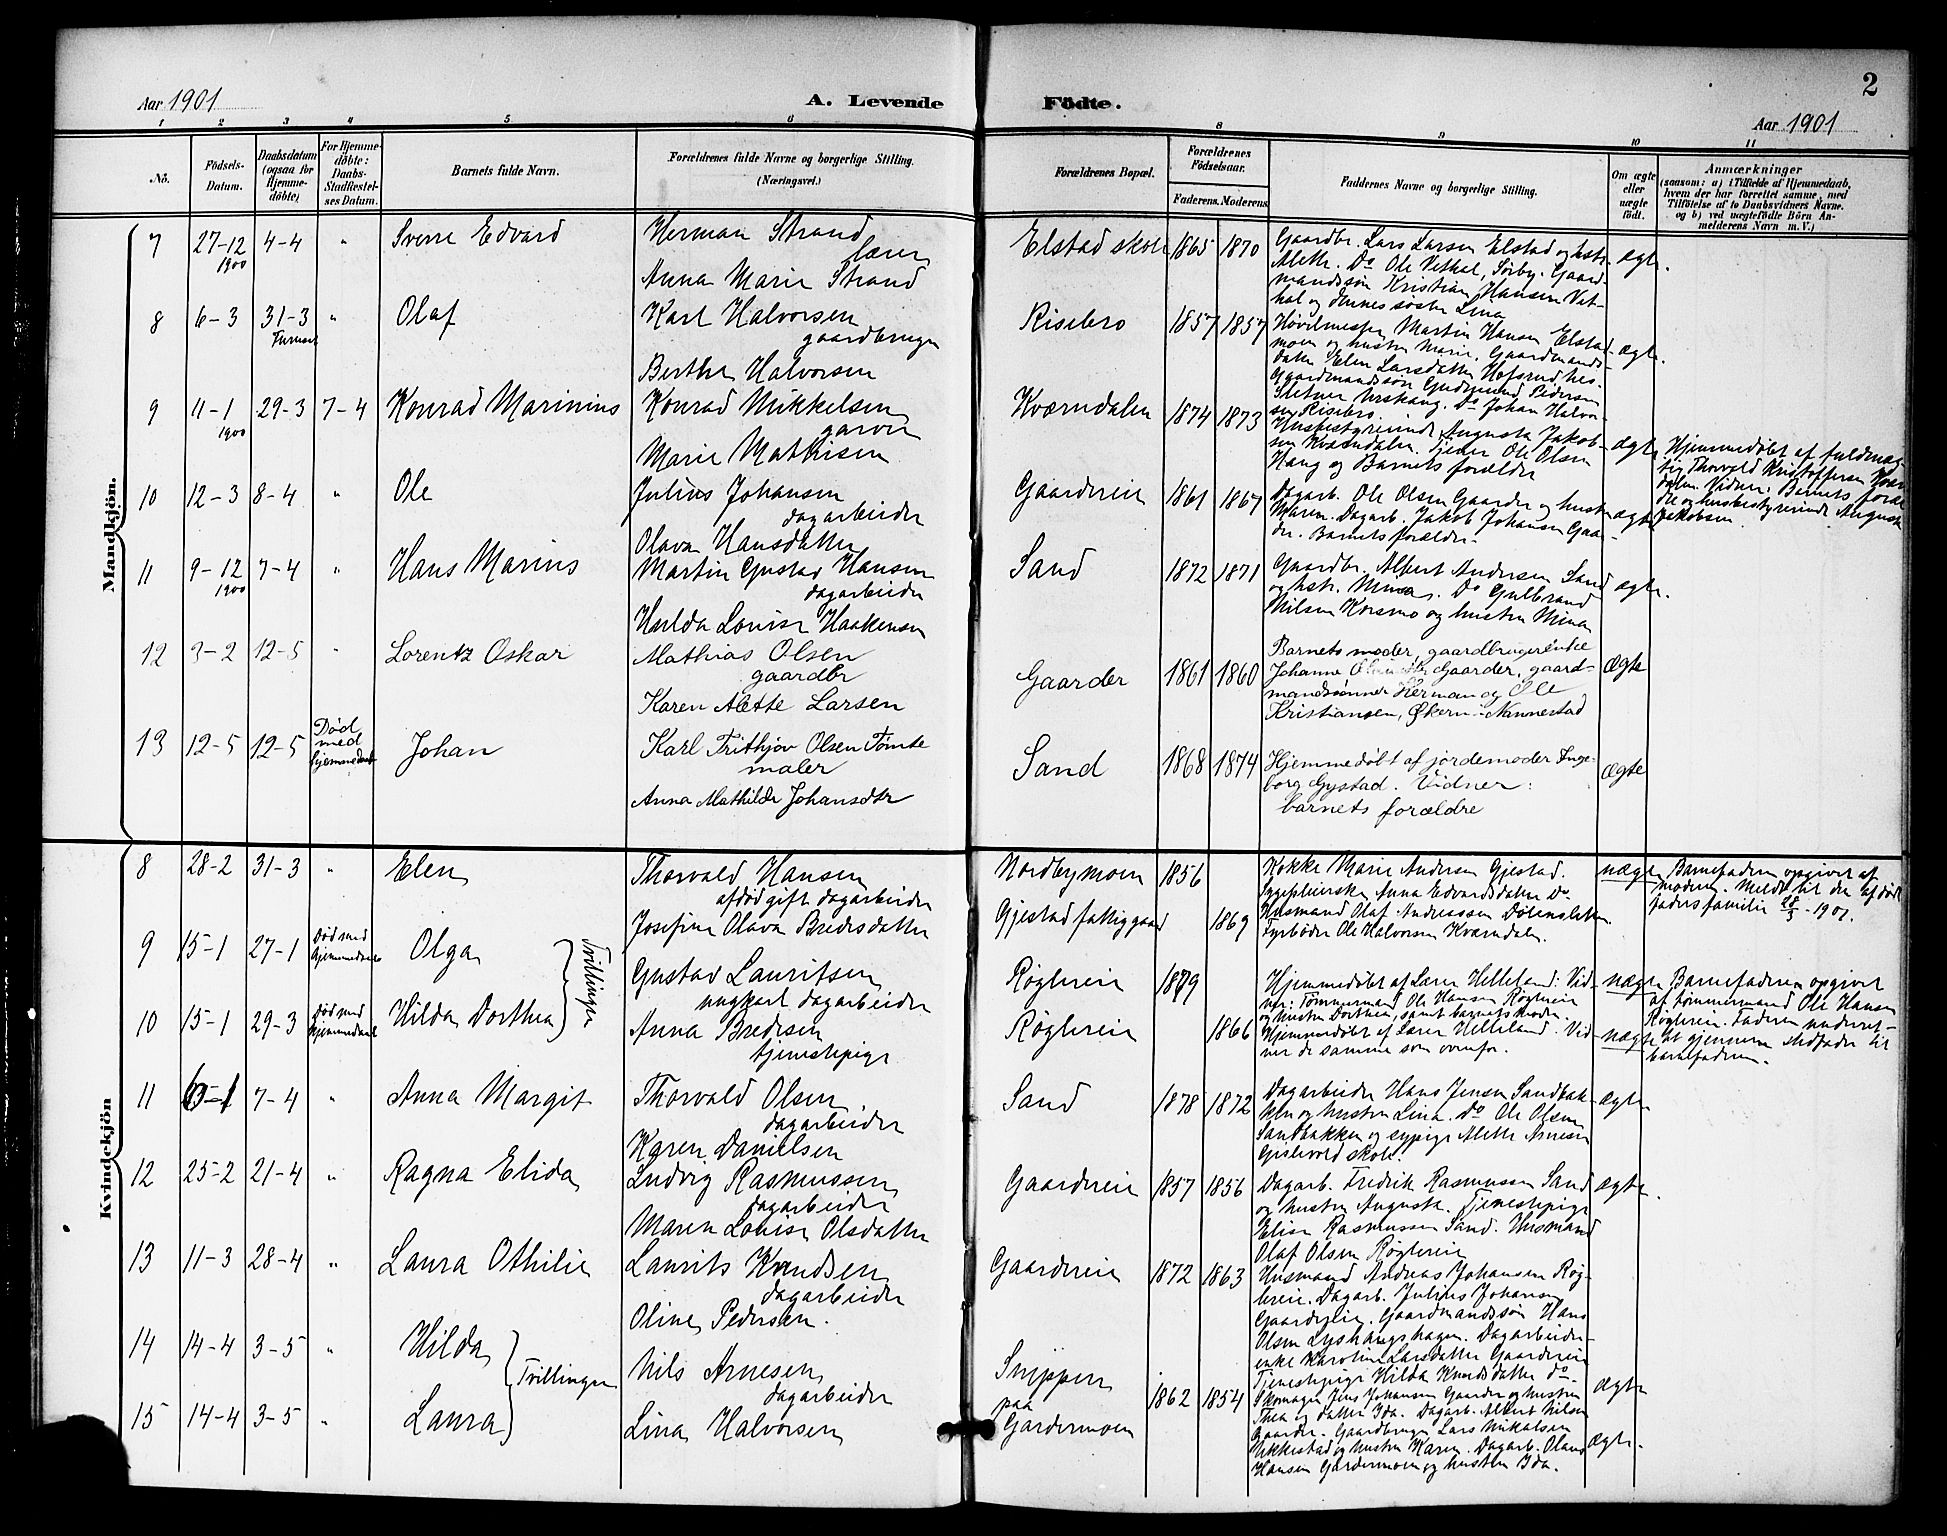 2
Aar 1901
A. Levende Födte.
Aar 1901
1 2 3 4 5 6 8 9 10 11
No.
Födsels-Datum.
Daabsdatum (ogsaa for Hjemme-döbte)
For Hjemme-döbte: Daabs-Stadfæstel-ses Datum.
Barnets fulde Navn.
Forældrenes fulde Navne og borgerlige Stilling. (Næringsvei.)
Forældrenes Bopæl.
Forældrenes Födselsaar.
Faderens. Moderens.
Faddernes Navne og borgerlige Stilling.
Om ægte eller uægte födt.
Anmærkninger
(saasom: a) i Tilfælde af Hjemmedaab,
hvem der har forrettet samme, med
Tilföielse af to Daabsvidners Navne.
og b) ved uægtefödte Börn An-
melderens Navn m. V.)
Mandkjön.
7 27-12 1900 4-4 " Sverre Edvard
Herman Strand
lærer
Anna Marie Strand
Elstad skole 1865 1870
Gaardbr. Lars Larsen Elstad og hstr.
Alethe. Do Ole Vethal, Sørby. Gaard-
mandssøn Kristian Hansen Vet-
hal og dennes søster Lina
ægte.
8 6-3 31-3 Furuset " Olaf
Karl Halvorsen
gaardbruger
Berthe Halvorsen
Risebro 1857 1857
Høvlmester Martin Hansen Elstad-
moen og hustru Marie. Gaardmands-
datter Elen Larsdatter Hofsrud
Gaardmandssøn Gudmund Pedersen
Sletner Urskaug. Do Johan Halvor-
sen Risebro.
ægte.
9 11-1 1900 29-3 7-4 Konrad Marinius
Konrad Mikkelsen
garver
Marie Mathisen
Kværndalen 1874 1873
Husbestyrerinde Augusta Jakob-
sen Kværndalen. Tjener Ole Olsen
Haug og Barnets forældre
ægte
Hjemmedøbt af fuldmæg-
tig Thorvald Kristoffersen Kværn-
dalen. Vidner: Barnets foræl-
dre og husbestyrerinde Augusta
Jakobsen.
10 12-3 8-4 " Ole
Julius Johansen
dagarbeider
Olava Hansdatter
Gaardereie 1861 1867
Dagarb. Ole Olsen Gaarder og hustr.
Maren. Dagarb. Jakob Johansen Gaar-
der. Barnets forældre.
ægte
11 9-12 1900 7-4 " Hans Marius
Martin Gustad Hansen
dagarbeider
Hulda Louise Haakensen
Sand 1872 1871
Gaardbr. Albert Andersen Sand
og hstr. Mina. Do Gulbrand
Nilsen Korsmo og hustru Mina
ægte.
12 3-2 12-5 " Lorentz Oskar
Mathias Olsen
gaardbr
Karen Alette Larsen
Gaarder 1861 1860
Barnets moder, gaardbrugerenke
Johanne Gaarder, gaard-
mandssønner Herman og Ole
Kristiansen, Økern - Nannestad
ægte
13 12-5 12-5 Død med hjemmedaab Johan
Karl Frithjov Olsen Tømte
maler
Anna Mathilde Johansdtr
Sand 1868 1874
Hjemmedøbt af jordemoder Inge-
borg Gystad. Vidner:
barnets forældre
ægte
Kvindekjön
8 28-2 31-3 " Elen
Thorvald Hansen
afdød gift dagarbeider
Josefine Olava Bredesdatter
Nordbymoen 1856
Gjestad fattiggaard 1869
Kokke Marie Andersen Gjestad.
Sygepleierske Anna Edvardsdatter Do.
Husmand Olaf Andreassen Dølensletten
Fyrbøder Ole Halvorsen Kværndalen.
uægte
Barnefaderen opgivet af
moderen. Meldt til den afdøde
faders familie 28/3-1901.
9 15-1 27-1 Død med hjemmedaab Olga
Tvillinger
Gustav Lauritsen
ungkarl dagarbeider
Røglereie 1879
Hjemmedøbt af Lærer Helleland: Vid-
ner: Tømmermand Ole Hansen Røglereie
og hustru Dorthea, samt barnets moder.
uægte
Barnefaderen opgivet
af tømmermand Ole Hansen
Røglereie. Faderen underret-
at gjennem stedfader til
barnefaderen.
10 15-1 29-3 Død med hjemmedaab Hilda Dorthea
Anna Bredesen
tjenestepige
Røglereie 1866
Hjemmedøbt af Lærer Helleland. Vid-
ner de samme som ovenfor.
uægte
11 6-1 7-4 " Anna Margit
Thorvald Olsen
dagarbeider
Karen Danielsen
Sand 1878 1872
Dagarbeider Hans Jensen Sandbak-
ken og hustru Lina. Do Ole Olsen
Sandbakken og sypige Alette Arnesen
Gislevold skole.
ægte.
12 25-2 21-4 " Ragna Elida
Ludvig Rasmussen
dagarbeider
Maren Louise Olsdatter
Gaardereie 1857 1856
Dagarb. Fredrik Rasmussen Sand
og hustru Augusta. Tjenestepige
Elise Rasmussen Sand. Husmand
Olaf Olsen Røglereie
ægte.
13 11-3 28-4 " Laura Othilie
Laurits Knudsen
dagarbeider
Oline Pedersen.
Gaardereie 1872 1863
Husmand Andreas Johansen Røg-
lereie. Dagarb. Julius Johansen
Gaardereie. Gaardmandssøn Hans
Olsen Lyshaugshagen. Dagarbeider-
enke Karoline Larsdatter Gaardereie
14 14-4 3-5 " Hilda
Tvillinger
Nils Arnesen
dagarbeider
Snippen
paa
Gardermoen
1862 1854
Tjenestepige Hilda Knudsdatter do.
Skomager Jens Johansen Gaarder og hustru
Thea og datter Ida. Dagarb. Albert Nilsen
Gaarder. Gaardbruger Lars Mikalsen
Ukkestad og hustru Karen. Dagarb. Olaus
Hansen Gardermoen og hustru Ida.
ægte
15 14-4 3-5 " Laura
Lina Halvorsen
ægte.